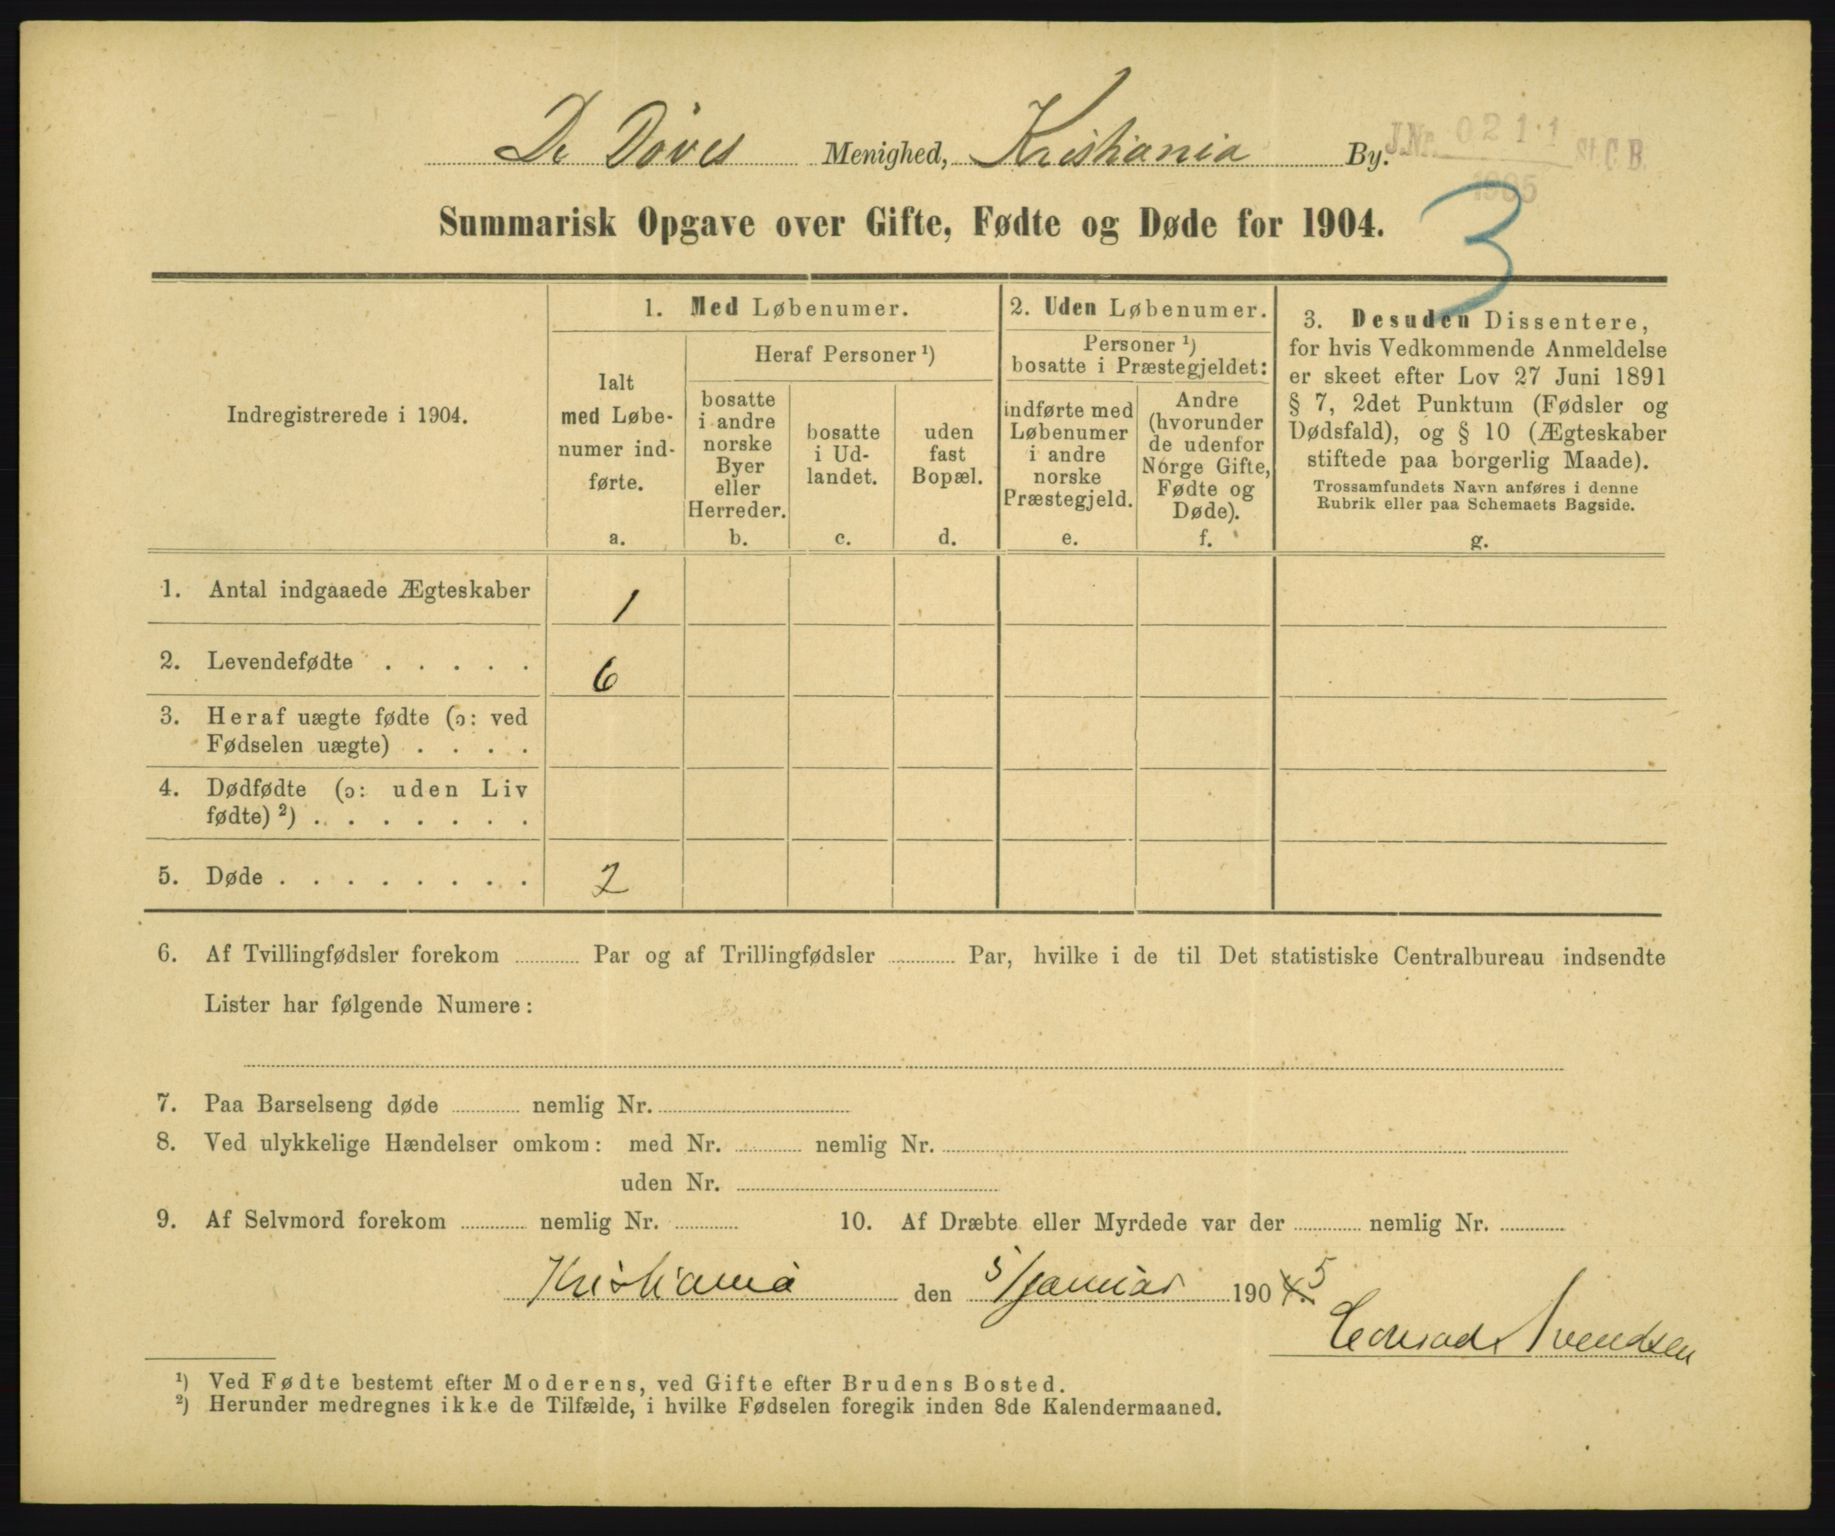 De Døves Menighed, Kristiania By.
J.Nr. 0211 St. C. B.
1905
3
Summarisk Opgave over Gifte, Fødte og Døde for 1904.
Indregistrerede i 1904.
1. Med Løbenumer.
Ialt
med Løbe-
numer ind-
førte.
a.
Heraf Personer ¹)
bosatte
i andre
norske
Byer
eller
Herreder.
b.
bosatte
i Ud-
landet.
c.
uden
fast
Bopæl.
d.
2. Uden Løbenumer.
Personer ¹)
bosatte i Præstegjeldet:
indførte med
Løbenumer
i andre
norske
Præstegjeld.
e.
Andre
(hvorunder
de udenfor
Norge Gifte,
Fødte og
Døde).
f.
3. Desuden Dissentere,
for hvis Vedkommende Anmeldelse
er skeet efter Lov 27 Juni 1891
§ 7, 2det Punktum (Fødsler og
Dødsfald), og § 10 (Ægteskaber
stiftede paa borgerlig Maade).
Trossamfundets Navn anføres i denne
Rubrik eller paa Schemaets Bagside.
g.
1. Antal indgaaede Ægteskaber 1
2. Levendefødte . . . . . 6
3. Heraf uægte fødte (ɔ: ved
Fødselen uægte) . . . .
4. Dødfødte (ɔ: uden Liv
fødte) ²) . . . . . . .
5. Døde . . . . . . . . 2
6. Af Tvillingfødsler forekom ............ Par og af Trillingfødsler ............ Par, hvilke i de til Det statistiske Centralbureau indsendte
Lister har følgende Numere:
7. Paa Barselseng døde ............ nemlig Nr. ............
8. Ved ulykkelige Hændelser omkom: med Nr. ............ nemlig Nr. ............
uden Nr. ............
9. Af Selvmord forekom ............ nemlig Nr. ............ 10. Af Dræbte eller Myrdede var der ............ nemlig Nr. ............
Kristiania den 5/januar 1904. 5
Conrad Svendsen
¹) Ved Fødte bestemt efter Moderens, ved Gifte efter Brudens Bosted.
²) Herunder medregnes ikke de Tilfælde, i hvilke Fødselen foregik inden 8de Kalendermaaned.